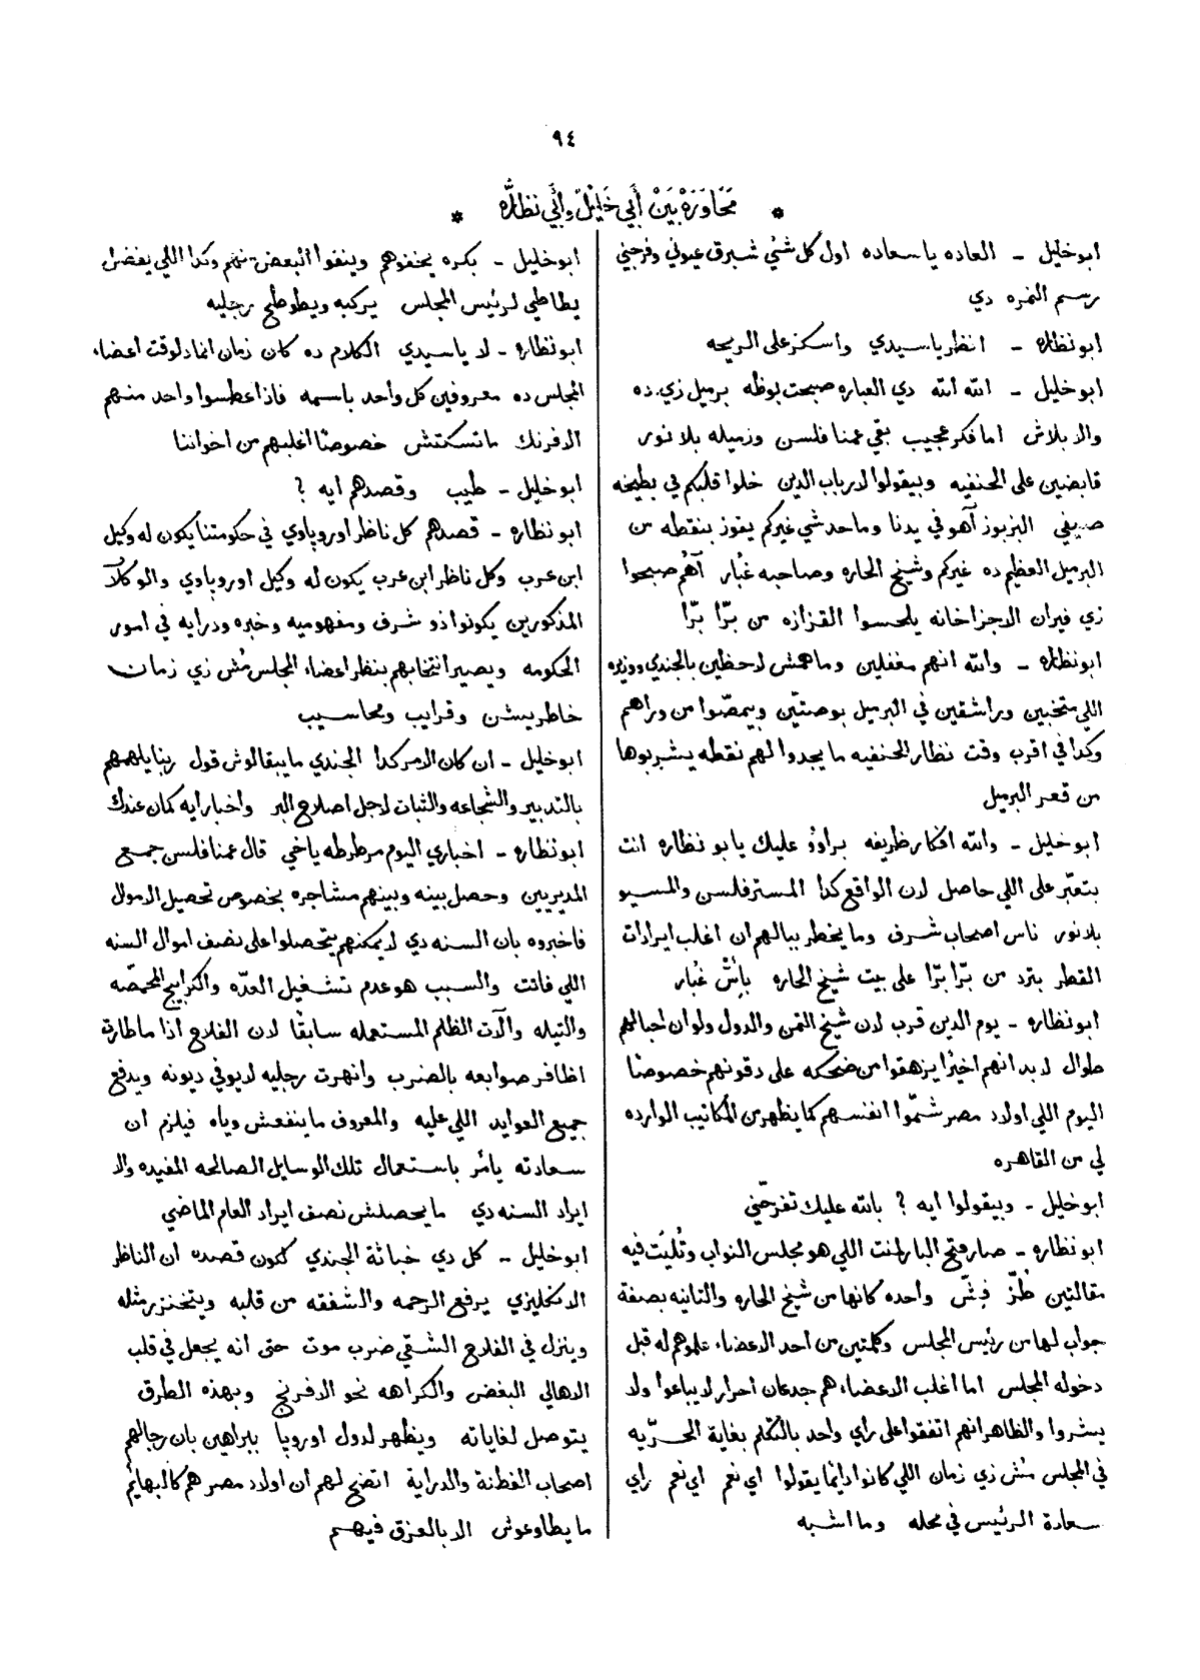 ٩٤
* مَحَاوَرَة بَيْنْ أَبِي خَلِيْل وأَبِي نظّاره *
ابوخليل - العاده ياسعاده اول كل شئ شبرق عيوني وفرجني
رسم النمره دي
ابونظاره - انظر ياسيدي واسكز على الريحه
ابوخليل - الله الله دي العباره صبحت بوظه برميل زي ده
والا بلاش اما فكر عجيب بقي عمنا فلسن وزميله بلانور
قابضين على الحنفيه وبيقولوا لارباب الدين خلوا قلبكم في بطيخه
صيفي البزبوز آهو في يدنا وماحد شي غيركم يفوز بنقطه من
البرميل العظيم ده غيركم وشيخ الحاره وصاحبه غُبار آهُم صبحوا
زي فيران الاجزاخانه يلحسوا القزازه من برّا برّا
ابونظاره - والله انهم مغفلين وماهمش لاحظين بالجندي ووزيره
اللي متخبين وراشقين في البرميل بوصتين وبيمصّوا من وراهم
وكدا في اقرب وقت نظار الحنفيه مايجدوا لهم نقطه يشربوها
من قعر البرميل
ابوخليل - والله افكار ظريفه براوو عليك يابو نظاره انت
بتعبّر على اللي حاصل لان الواقع كدا المسترفلسن والمسيو
بلانور ناس اصحاب شرف وما يخطر ببالهم ان اغلب ايرادات
القطر بترد من برّا برّا على بيت شيخ الحاره بأش غُبار
ابونظاره - يوم الدين قرب لان شيخ التمن والدول ولو ان احبالهم
طوال لابد انهم اخيرًا يزهقوا من ضحكه على دقونهم خصوصًا
اليوم اللي اولاد مصر شمّوا انفسهم كما يظهر من المكاتيب الوارده
لي من القاهره
ابوخليل - وبيقولوا ايه ؟ بالله عليك تفرحّني
ابونظاره - صار فتح البارلمنت اللي هو مجلس النواب وتُليَت فيه
مقالتين طُزّ فِشّ واحده كانها من شيخ الحاره والتانيه بصفة
جواب لها من رئيس المجلس وكلمتين من احد الاعضاء علموهم له قبل
دخوله المجلس اما اغلب الاعضاء هم جدعان احرار لا يباعوا ولا
يشروا والظاهر انهم اتفقوا على رأي واحد بالتكلم بغاية الحرّيه
في المجلس مُش زي زمان اللي كانوا دائما يقولوا اي نعم اي نعم راي
سعادة الرئيس في محله وما اشبه
ابوخليل - بكره يخفوهم وينفوا البعض منهم وكدا اللي يفضل
يطاطي لرئيس المجلس يركبه ويطوطح رجليه
ابونظاره - لا ياسيدي الكلام ده كان زمان انما دلوقت اعضاء
المجلس ده معروفين كل واحد باسمه فاذا عطسوا واحد منهم
الافرنك ماتسكتش خصوصًا اغلبهم من اخواننا
ابوخليل - طيب وقصدهم ايه ؟
ابونظاره - قصدهم كل ناظر اوروپاوي في حكومتنا يكون له وكيل
ابن عرب وكل ناظر ابن عرب يكون له وكيل اوروپاوي والوكلآ
المذكورين يكونوا ذو شرف ومفهوميه وخبره ودرايه في امور
الحكومه ويصير انتخابهم بنظر اعضاء المجلس مُش زي زمان
خاطريشن وقرايب ومحاسيب
ابوخليل - ان كان الامر كدا الجندي مايبقالوش قول ربنا يلهمهم
بالتدبير والشجاعه والثبات لاجل اصلاح البر واخبار ايه كمان عندك
ابونظاره - اخباري اليوم مرطرطه ياخي قال عمنا فلسن جمع
المديريين وحصل بينه وبينهم مشاجره بخصوص تحصيل الاموال
فاخبروه بان السنه دي لا يمكنهم يتحصلوا على نصف اموال السنه
اللي فاتت والسبب هو عدم تشغيل العدّه والكرابيج المحمّصه
والتيله وآلات الظلم المستعمله سابقًا لان الفلاح اذا ماطارت
اظافر صوابعه بالضرب وانهرت رجليه لا يوفي ديونه ويدفع
جميع العوايد اللي عليه والمعروف ماينفعش وياه فيلزم ان
سعادته يأمر باستعمال تلك الوسايل الصالحه المفيده والا
ايراد السنه دي مايحصلش نصف ايراد العام الماضي
ابوخليل - كل دي خباثة الجندي لكون قصده ان الناظر
الانكليزي يرفع الرحمه والشفقه من قلبه ويتخنزر مثله
وينزل في الفلاح الشقي ضرب موت حتى انه يجعل في قلب
الاهالي البغض والكراهه نحو الافرنج وبهذه الطرق
يتوصل لغاياته ويظهر لدول اوروپا ببراهين بان رجالهم
اصحاب الفطنة والدراية اتضح لهم ان اولاد مصر هم كالبهائم
ما يطاوعوش الا بالعزق فيهم